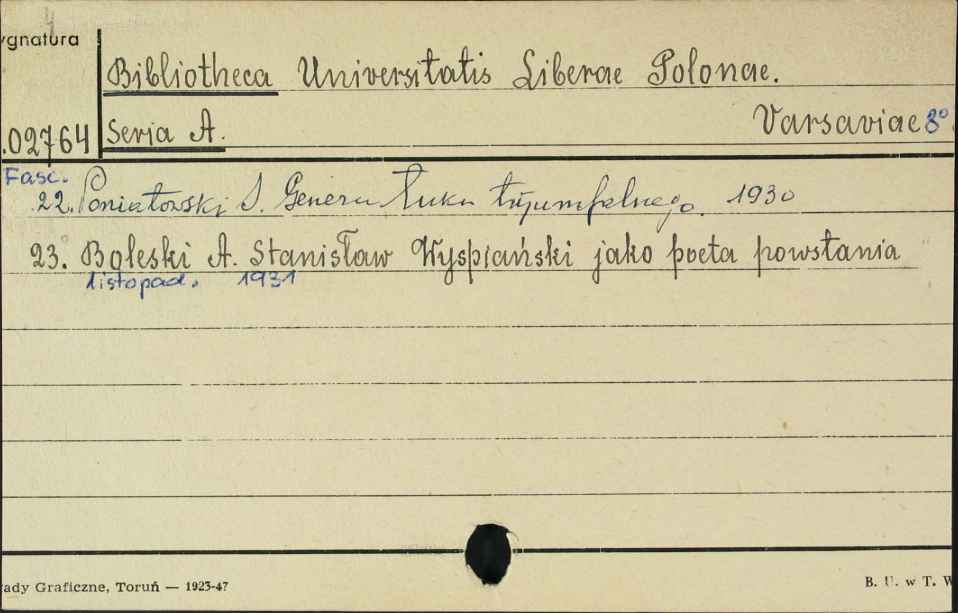 ygnatura
Bibliotheca Universitatis Liberae Polonae.
.02764 Seria A. Varsaviae 8°
Fasc.
22. Poniatowski S. Geneza łuku tryumfalnego. 1930
23. Boleski A. Stanisław Wyspiański jako poeta powstania
listopad. 1931
ady Graficzne, Toruń — 1923-47 B. U. w T. W